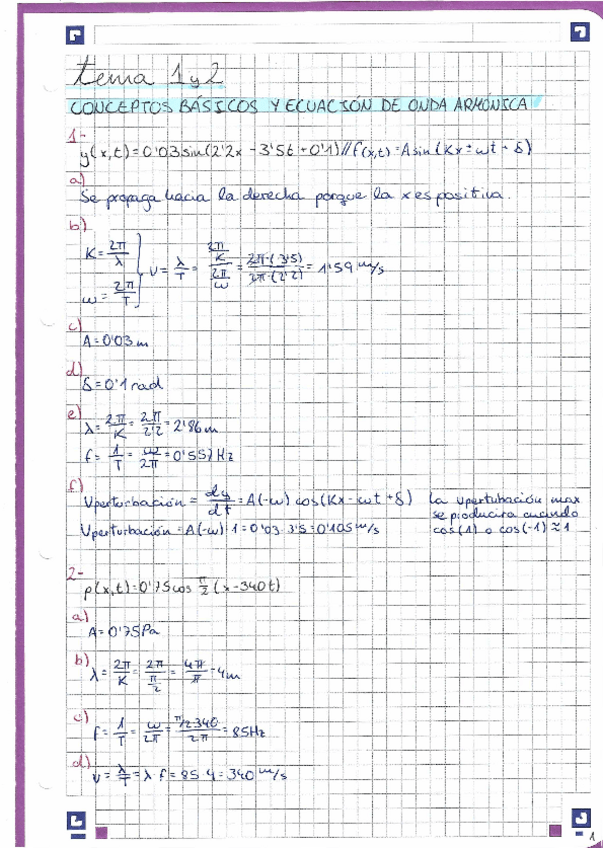 tema 1 y 2
CONCEPTOS BÁSICOS Y ECUACIÓN DE ONDA ARMÓNICA
1-
y(x,t)=0'03sin(2'2x-3'5t+0'1)//f(x,t)=Asin(Kx±ωt+δ)
a)
Se propaga hacia la derecha porque la x es positiva.
b)
K=2π/λ
ω=2π/T } v=λ/T=(2π/K)/(2π/ω)=2π·(3'5)/2π·(2'2)=1'59 m/s
c)
A=0'03m
d)
δ=0'1rad
e)
λ=2π/K=2π/2'2=2'86m
f=1/T=ω/2π=0'557Hz
f)
Vperturbación=dy/dt=A(-ω)cos(Kx-ωt+δ) la vpertubación max
se producira cuando
Vperturbación=A(-ω)·1=0'03·3'5=0'105m/s cos(1) o cos(-1)≈1
2-
p(x,t)=0'75cos π/2(x-340t)
a)
A=0'75Pa
b)
λ=2π/K=2π/(π/2)=4π/π=4m
c)
f=1/T=ω/2π=(π/2·340)/2π=85Hz
d)
v=λ/T=λ·f=85·4=340m/s
1